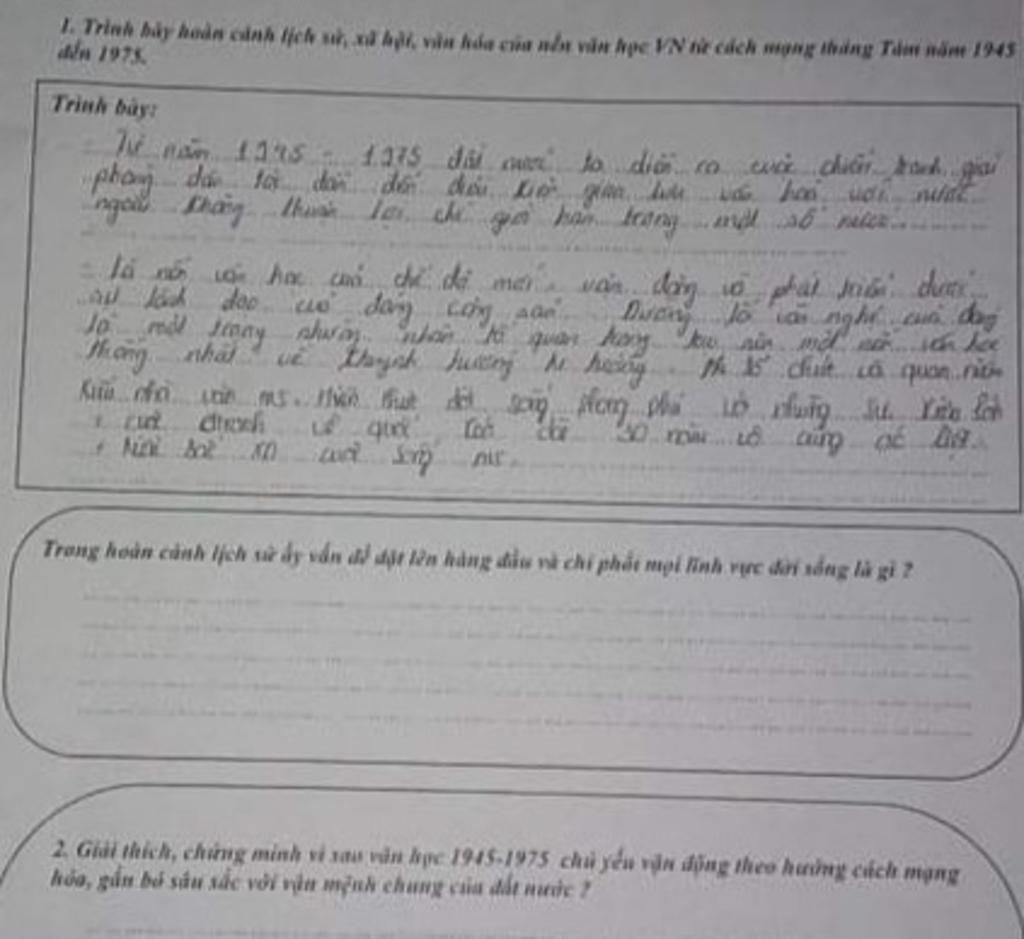 1. Trình bày hoàn cảnh lịch sử, xã hội, văn hóa của nền văn học VN từ cách mạng tháng Tám năm 1945
đến 1975.
Trình bày:
- Từ năm 1945 - 1975 đất nước ta diễn ra cuộc chiến tranh giải
phóng dân tộc dẫn đến điều kiện giao lưu văn hoá với nước
ngoài không thuận lợi chỉ giới hạn trong một số nước
- Là nền văn học của chế độ mới, vận động và phát triển dưới
sự lãnh đạo của đảng cộng sản. Đường lối văn nghệ của đảng
là một trong những nhân tố quan trọng tạo nên một nền văn học
thống nhất về khuynh hướng tổ chức và quan niệm
kiểu nhà văn ms. Hiện thực đời sống phong phú và những sự kiện lịch
+ cuộc vệ quốc kéo dài 30 năm vô cùng ác liệt
+ cuộc sống ms.
Trong hoàn cảnh lịch sử ấy vấn đề đặt lên hàng đầu và chi phối mọi lĩnh vực đời sống là gì ?
2. Giải thích, chứng minh vì sao văn học 1945-1975 chủ yếu vận động theo hướng cách mạng
hóa, gắn bó sâu sắc với vận mệnh chung của đất nước ?